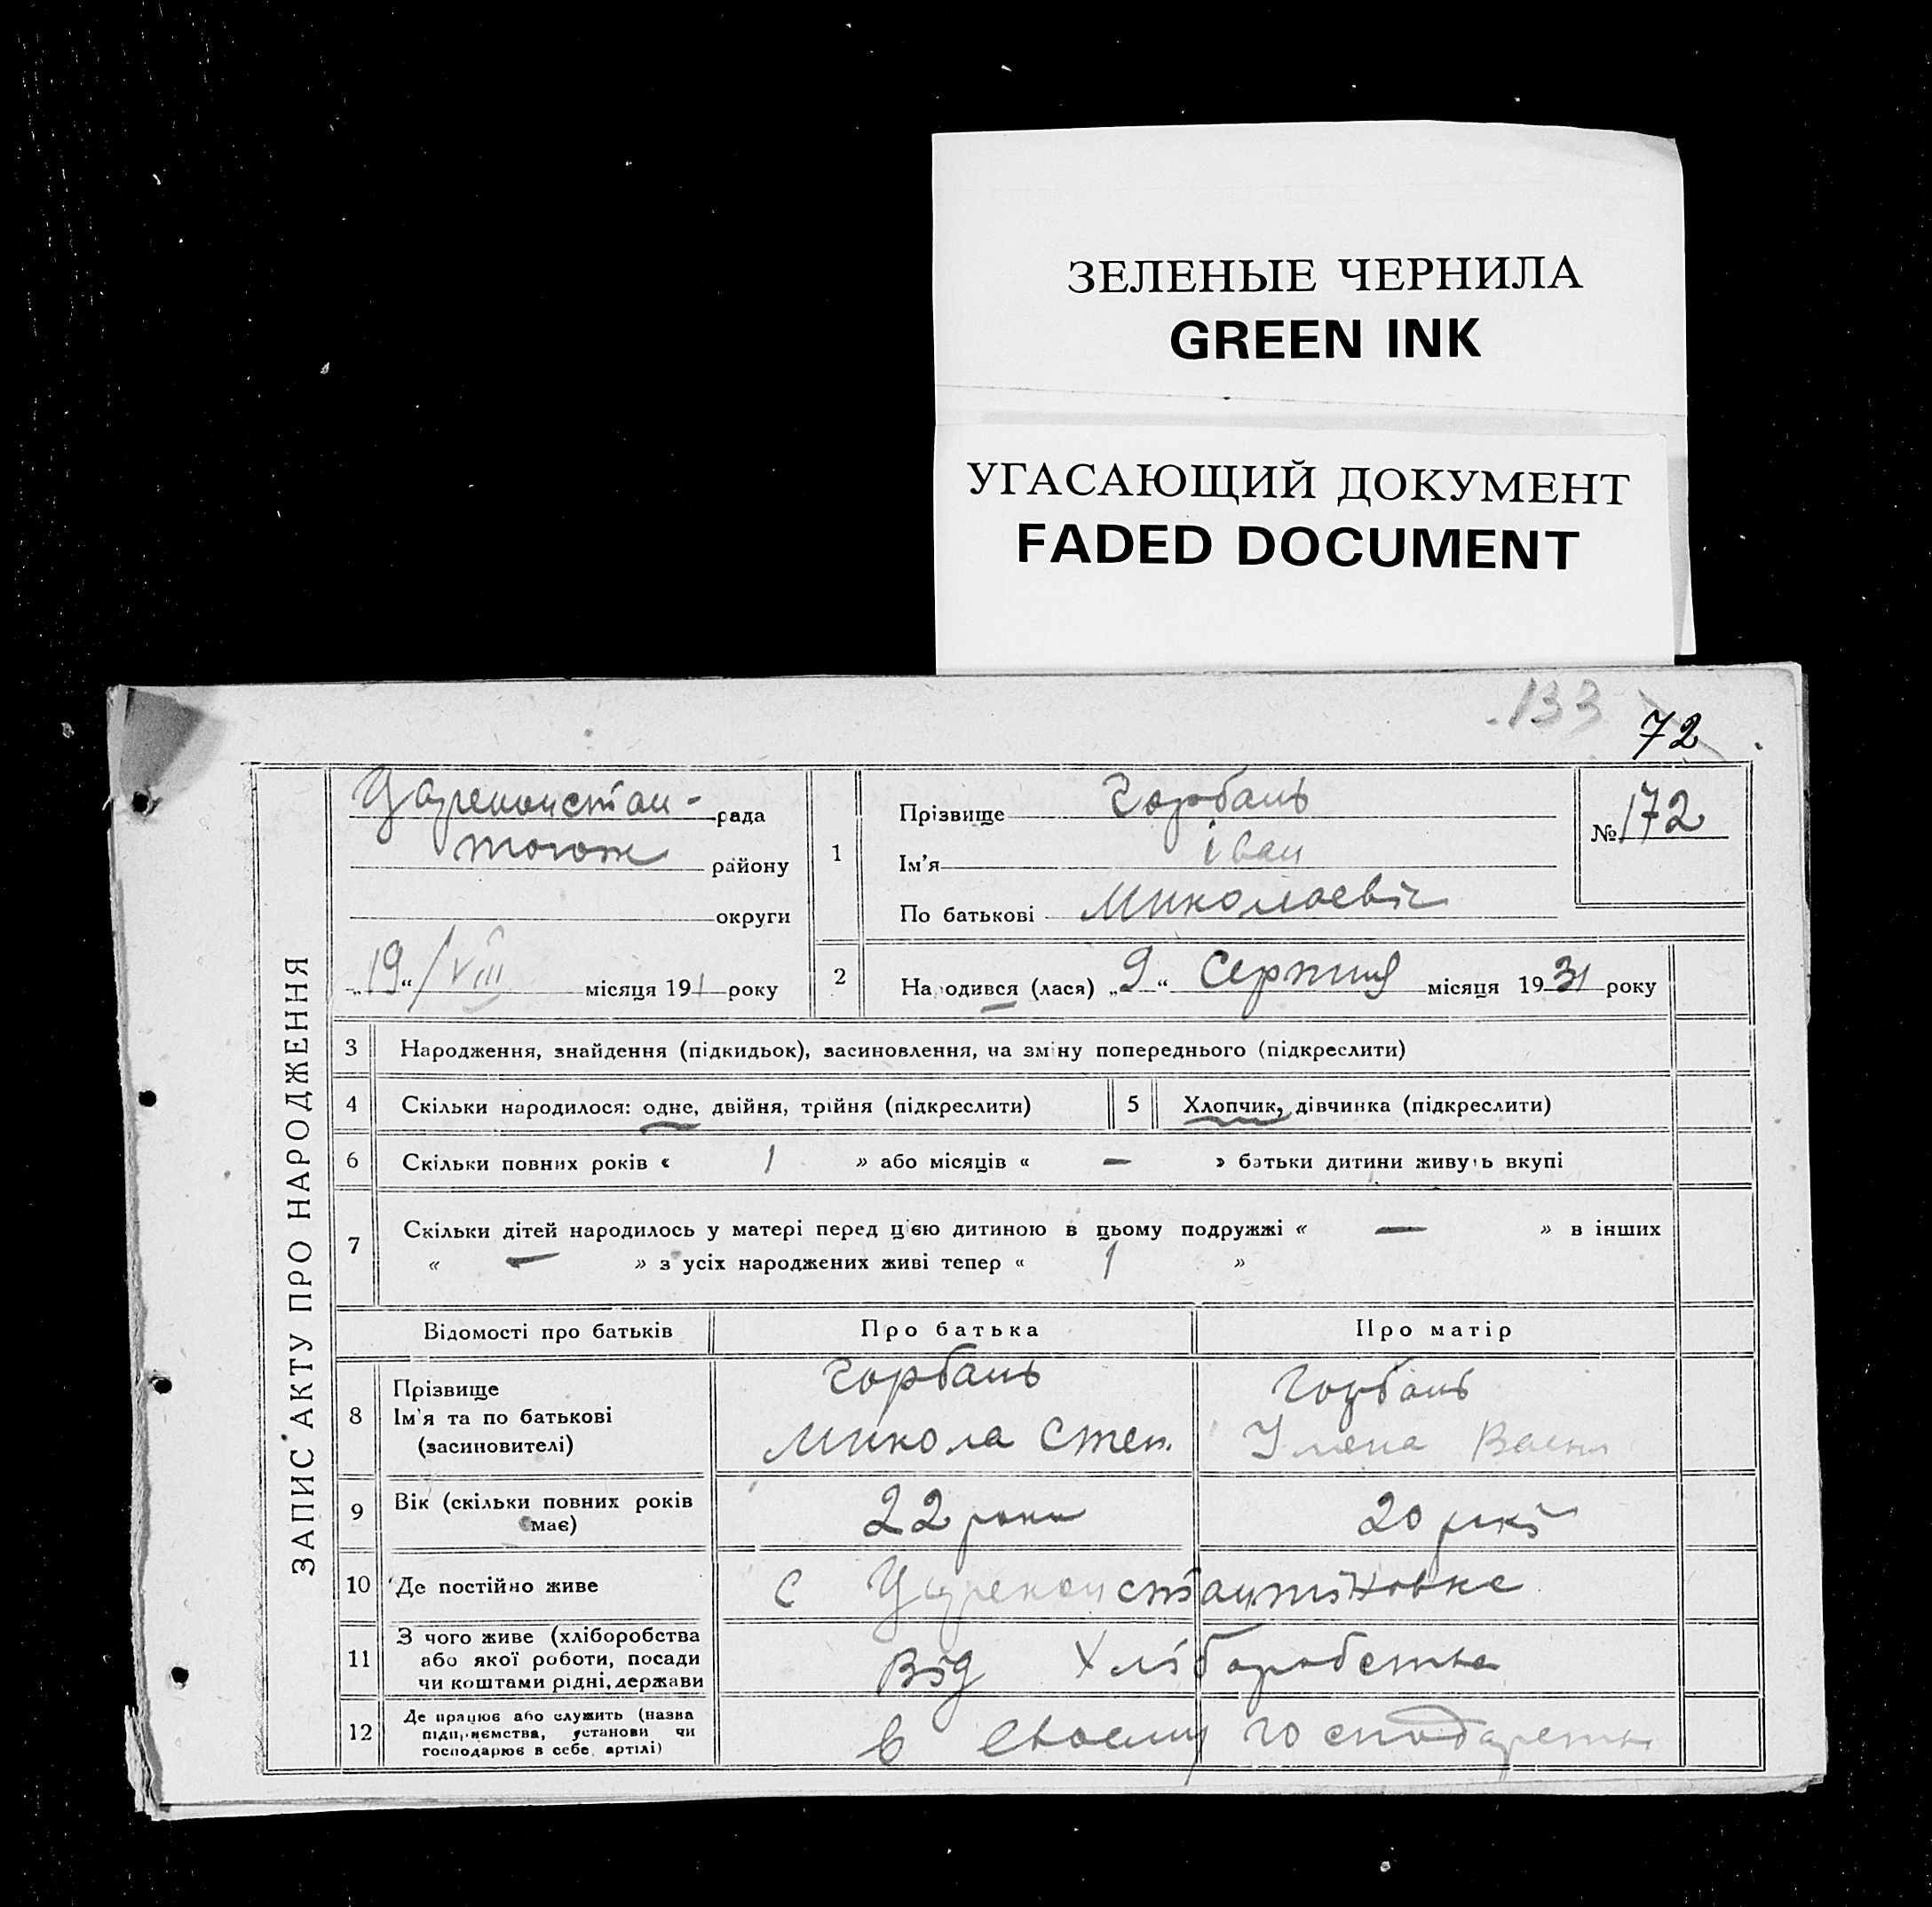 ЗЕЛЕНЫЕ ЧЕРНИЛА
GREEN INK
УГАСАЮЩИЙ ДОКУМЕНТ
FADED DOCUMENT
133
72
ЗАПИС АКТУ ПРО НАРОДЖЕННЯ
Цареконстан- рада
тогож району
округи
„19“ VIII місяця 191 року
1
Прізвище Горбань
Ім'я іван
По батькові Миколаевіч
№ 172
2 Народився (лася) „9“ Серпня місяця 1931 року
3 Народження, знайдення (підкидьок), засиновлення, на зміну попереднього (підкреслити)
4 Скільки народилося: одне, двійня, трійня (підкреслити) 5 Хлопчик, дівчинка (підкреслити)
6 Скільки повних років « 1 » або місяців « — » батьки дитини живуть вкупі
7 Скільки дітей народилось у матері перед цією дитиною в цьому подружжі « — » в інших
« — » з усіх народжених живі тепер « 1 »
Відомості про батьків Про батька Про матір
8 Прізвище
Ім'я та по батькові
(засиновителі)
Горбань
Микола Степ.
Горбань
Уляна Васил
9 Вік (скільки повних років
має)
22 роки 20 рокі
10 Де постійно живе с Цареконстантіновке
11 З чого живе (хліборобства
або якої роботи, посади
чи коштами рідні, держави
Від Хліборобства
12 Де працює або служить (назва
підприємства, установи чи
господарює в себе, артілі)
в своему господарстві